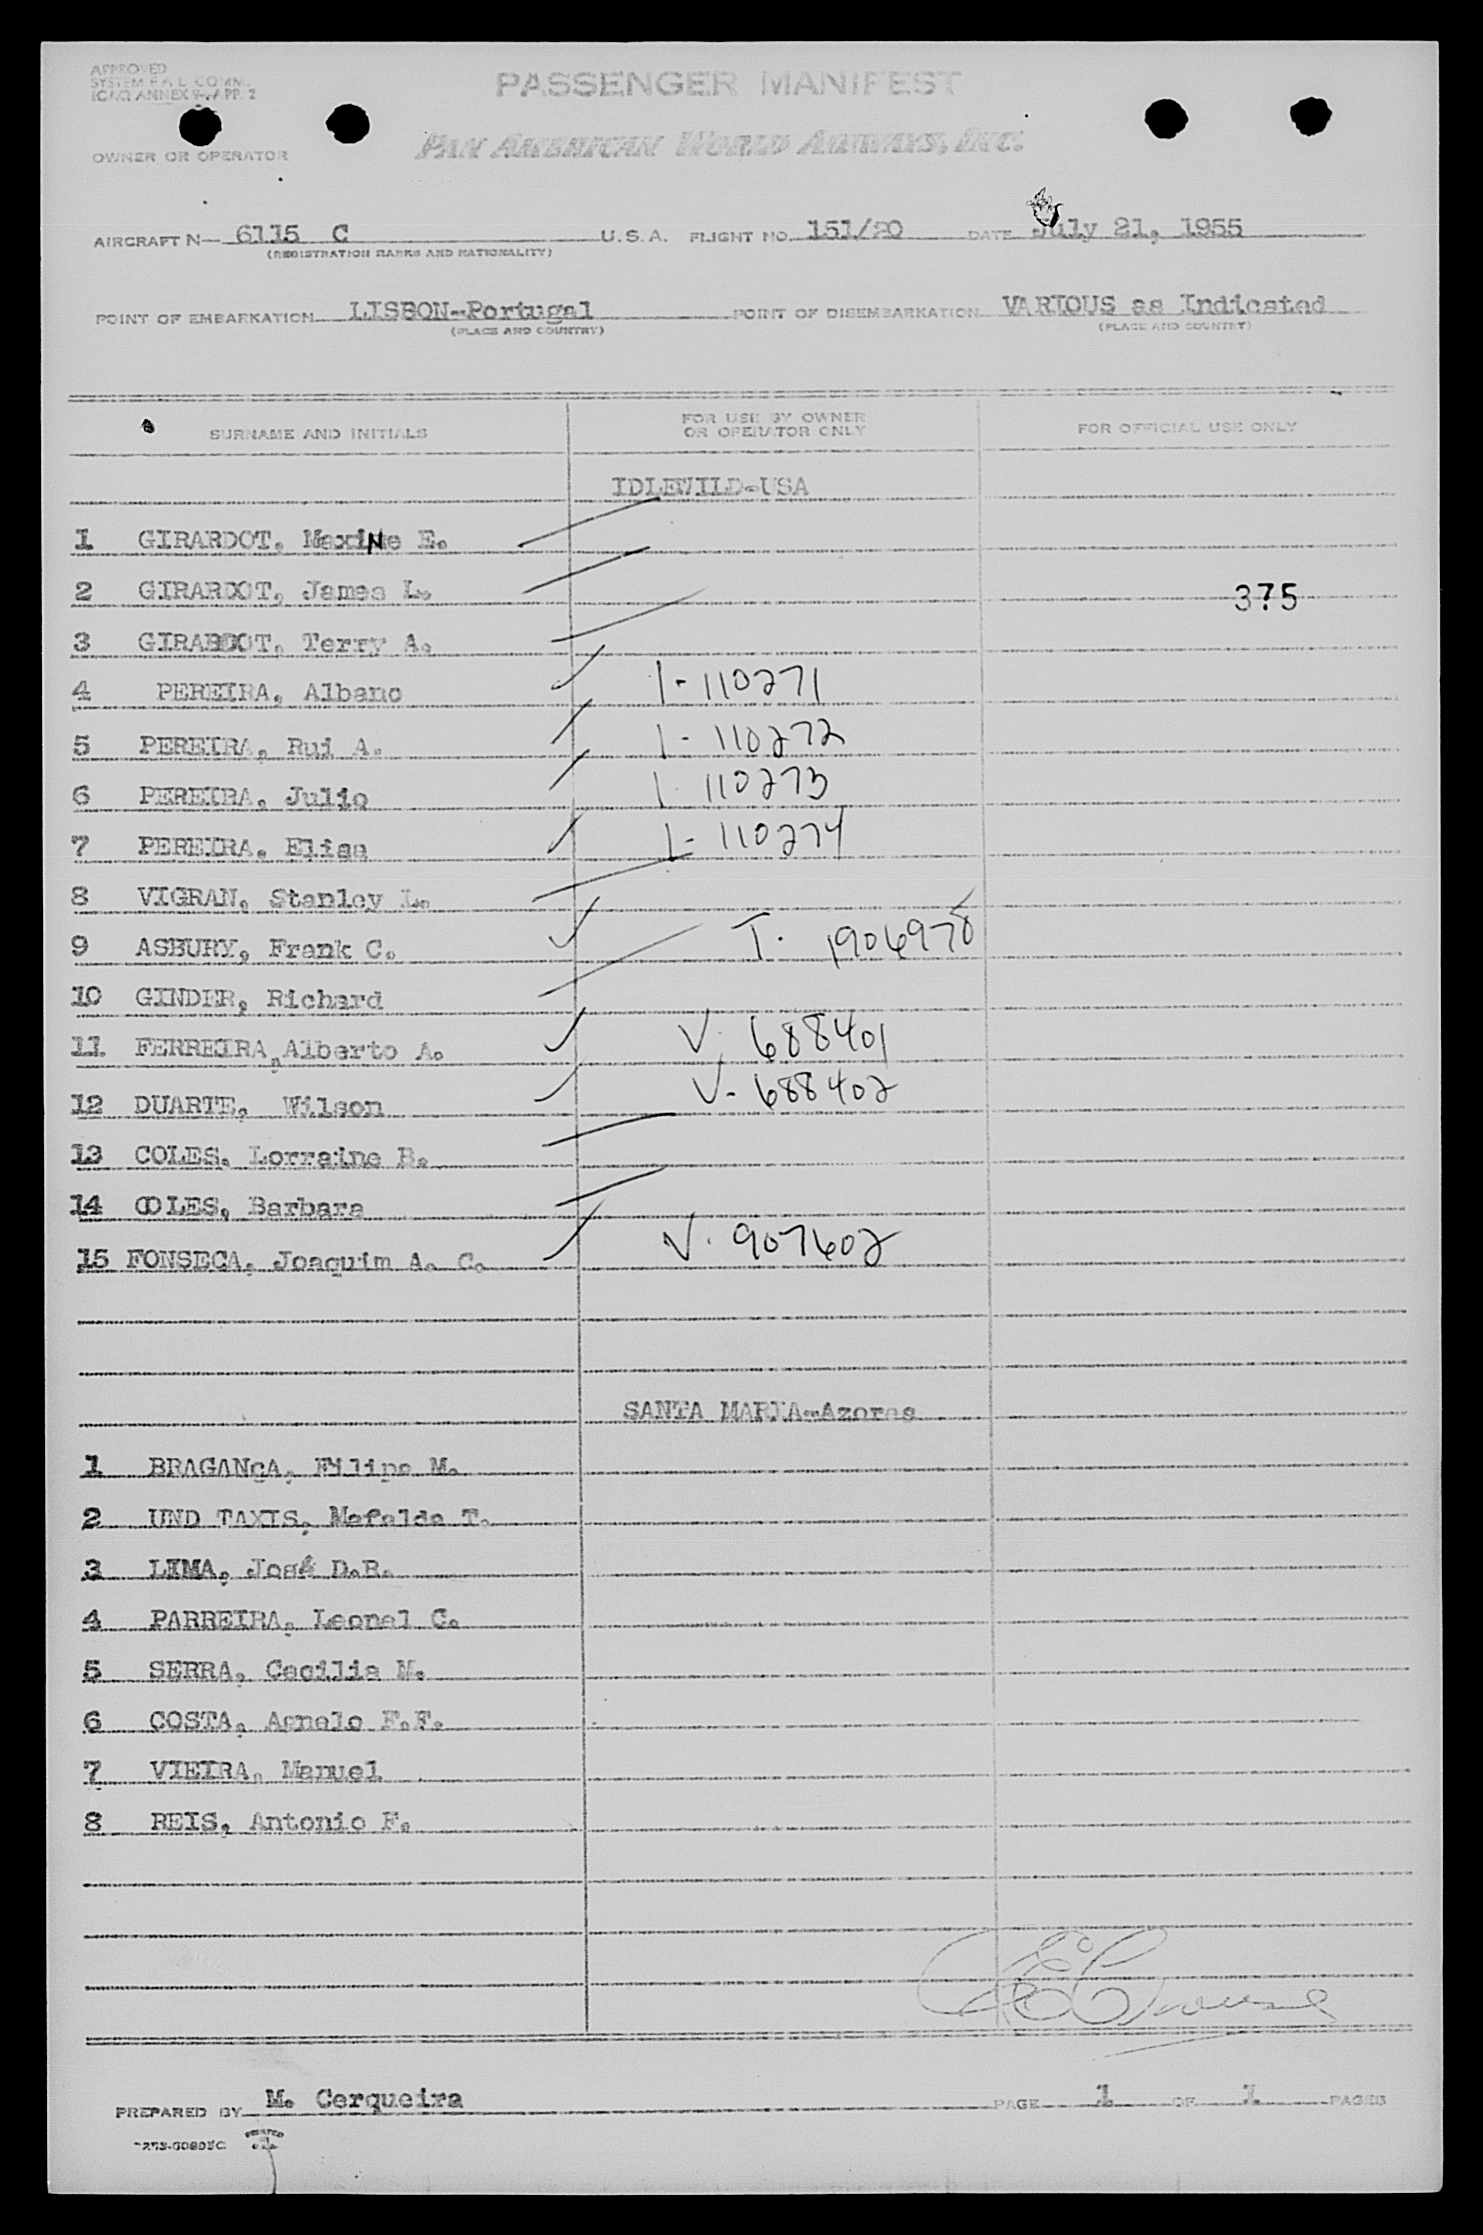 APPROVED
SYSTEM F.A.L. COMM.
ICAO ANNEX 9-APP. 2
PASSENGER MANIFEST
OWNER OR OPERATOR PAN AMERICAN WORLD AIRWAYS, INC.
AIRCRAFT N— 6115 C U.S.A. FLIGHT NO. 151/20 DATE July 21, 1955
(REGISTRATION MARKS AND NATIONALITY)
POINT OF EMBARKATION LISBON-Portugal POINT OF DISEMBARKATION VARIOUS as Indicated
(PLACE AND COUNTRY) (PLACE AND COUNTRY)
SURNAME AND INITIALS FOR USE BY OWNER OR OPERATOR ONLY FOR OFFICIAL USE ONLY
IDLEWILD-USA
1 GIRARDOT, MaxiNe E.
2 GIRARDOT, James L. 375
3 GIRARDOT, Terry A.
4 PEREIRA, Albano ✓ 1-110271
5 PEREIRA, Rui A. ✓ 1-110272
6 PEREIRA, Julio ✓ 1-110273
7 PEREIRA, Elisa ✓ 1-110274
8 VIGRAN, Stanley L.
9 ASBURY, Frank C. ✓ T. 1906978
10 GINDER, Richard
11 FERREIRA, Alberto A. ✓ V. 688401
12 DUARTE, Wilson ✓ V-688402
13 COLES, Lorraine B.
14 COLES, Barbara
15 FONSECA, Joaquim A. C. ✓ V. 907602
SANTA MARIA-Azores
1 BRAGANçA, Filipe M.
2 UND TAXIS, Mafalda T.
3 LIMA, José D.R.
4 PARREIRA, Leonel C.
5 SERRA, Cecilia M.
6 COSTA, Agnelo F.F.
7 VIEIRA, Manuel
8 REIS, Antonio F.
PREPARED BY M. Cerqueira PAGE 1 OF 1 PAGES